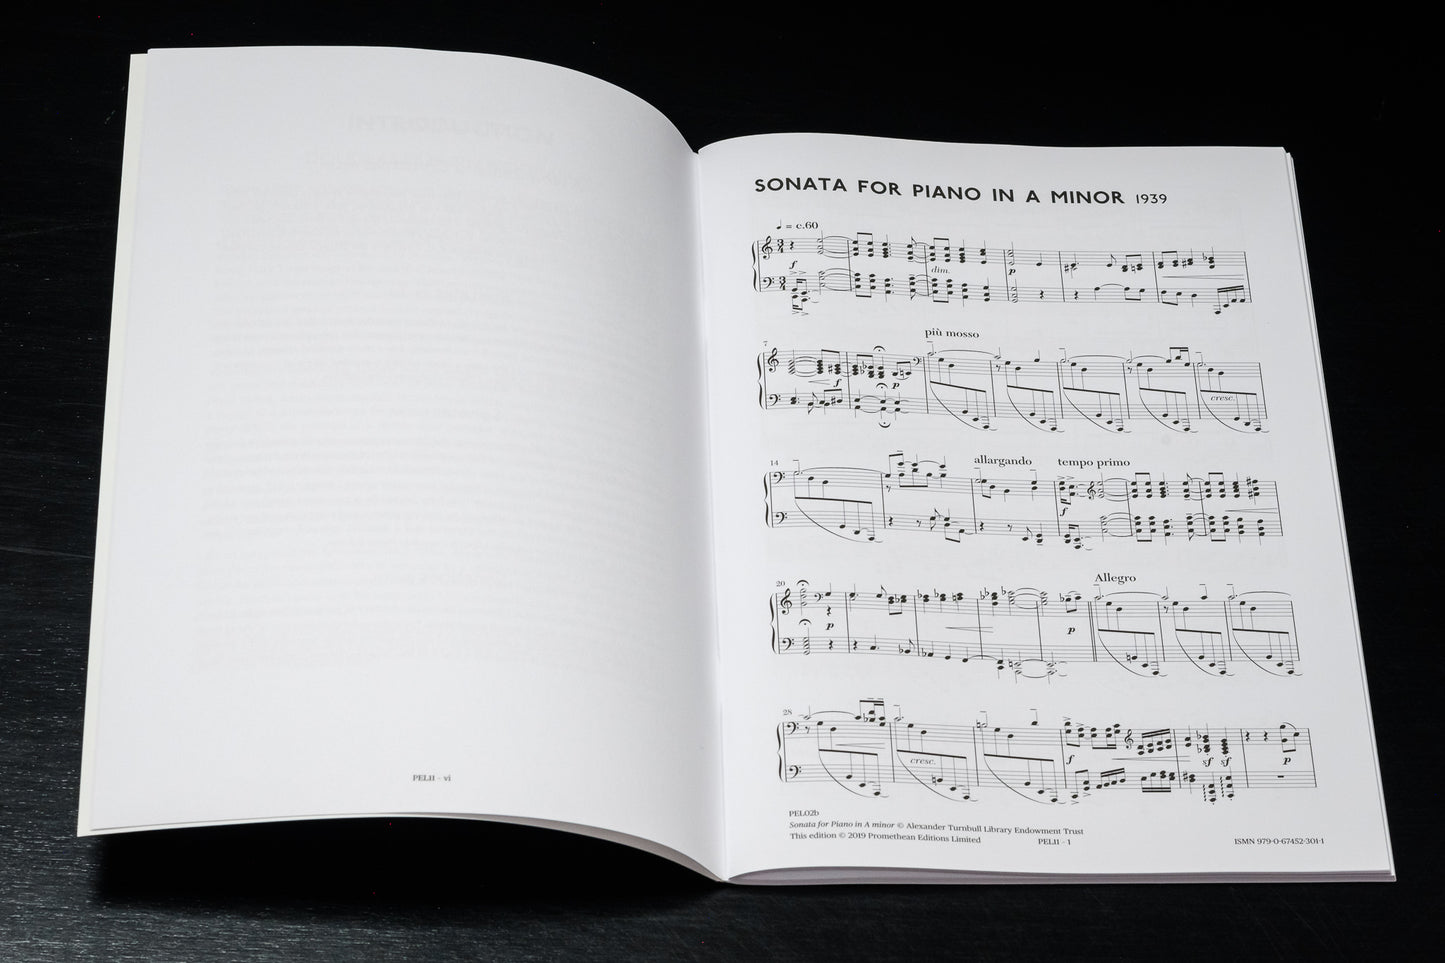 PELII – vi
SONATA FOR PIANO IN A MINOR 1939
♩ = c.60
f
dim.
p
7
più mosso
f
p
cresc.
14
allargando
tempo primo
f
20
Allegro
p
p
28
cresc.
f
sf sf
p
PEL02b
Sonata for Piano in A minor © Alexander Turnbull Library Endowment Trust
This edition © 2019 Promethean Editions Limited
PELII – 1
ISMN 979-0-67452-301-1